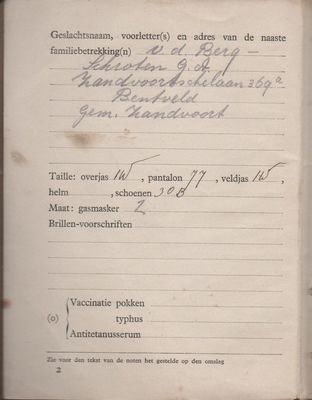 Geslachtsnaam, voorletter(s) en adres van de naaste
familiebetrekking(n) v. d. Berg –
Schroten G. A.
Zandvoortschelaan 369a
Bentveld
Gem. Zandvoort
Taille: overjas IW, pantalon 77, veldjas IW,
helm , schoenen 30B
Maat: gasmasker 2
Brillen-voorschriften
(o) Vaccinatie pokken
typhus
Antitetanusserum
Zie voor den tekst van de noten het gestelde op den omslag
2